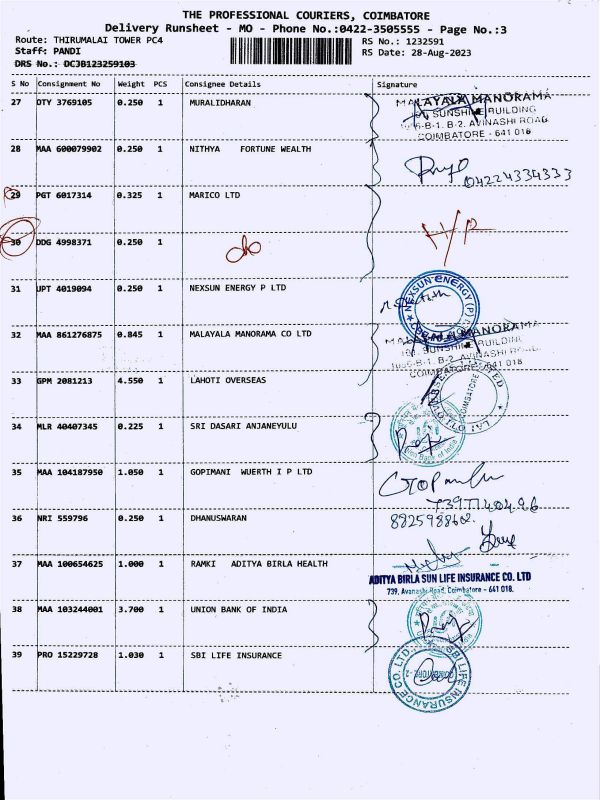 THE PROFESSIONAL COURIERS, COIMBATORE
Delivery Runsheet - MO - Phone No.:0422-3505555 - Page No.:3
Route: THIRUMALAI TOWER PC4 RS No.: 1232591
Staff: PANDI RS Date: 28-Aug-2023
DRS No.: DCJB123259103
S No Consignment No Weight PCS Consignee Details Signature
27 OTY 3769105 0.250 1 MURALIDHARAN
MALAYALA MANORAMA
SUNSHINE BUILDING
B-1. B-2. AVINASHI ROAD
COIMBATORE - 641 018
28 MAA 600079902 0.250 1 NITHYA FORTUNE WEALTH
04224334333
29 PGT 6017314 0.325 1 MARICO LTD
30 DDG 4998371 0.250 1
do
H/P
31 JPT 4019094 0.250 1 NEXSUN ENERGY P LTD
NEXSUN ENERGY (P)
32 MAA 861276875 0.845 1 MALAYALA MANORAMA CO LTD
MALAYALA MANORAMA
SUNSHINE BUILDING
B-1. B-2. AVINASHI ROAD
COIMBATORE - 641 018
33 GPM 2081213 4.550 1 LAHOTI OVERSEAS
COIMBATORE
34 MLR 40407345 0.225 1 SRI DASARI ANJANEYULU
Union Bank of India
35 MAA 104187950 1.050 1 GOPIMANI WUERTH I P LTD
36 NRI 559796 0.250 1 DHANUSWARAN
37 MAA 100654625 1.000 1 RAMKI ADITYA BIRLA HEALTH
ADITYA BIRLA SUN LIFE INSURANCE CO. LTD
739, Avanashi Road, Coimbatore - 641 018.
38 MAA 103244001 3.700 1 UNION BANK OF INDIA
39 PRO 15229728 1.030 1 SBI LIFE INSURANCE
SBI LIFE INSURANCE CO. LTD.